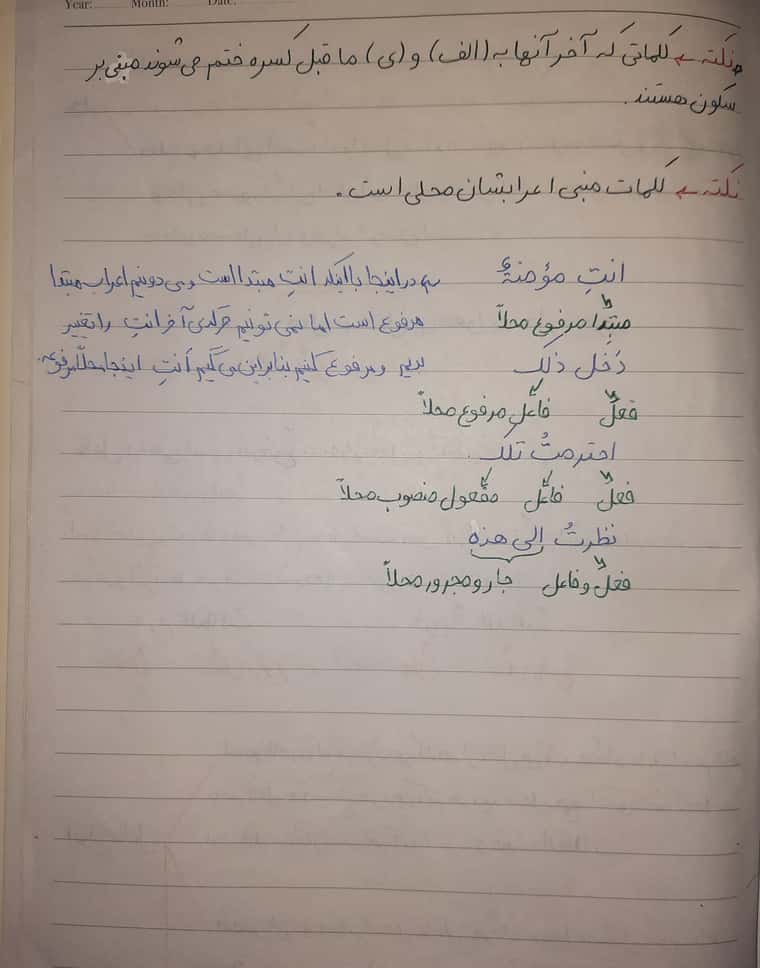 Year: Month: Date:
نکته ← کلماتی که آخر آنها به (الف) و (ی) ما قبل کسره ختم می شوند مبنی بر
سکون هستند.
نکته ← کلمات مبنی اعرابشان محلی است.
انتِ مؤمنةٌ ← در اینجا با اینکه انتِ مبتدا است و می دونیم اعراب مبتدا
مبتدا مرفوع محلاً مرفوع است اما نمی تونیم حرکت آخر انتِ را تغییر
دَخل ذلک بدیم و مرفوع کنیم بنابراین می گیم أنتِ اینجا محلاً مرفوعه.
فعل فاعل مرفوع محلاً
احترمتُ تلک.
فعل فاعل مفعول منصوب محلاً
نظرتُ الی هذه
فعل و فاعل جار و مجرور محلاً